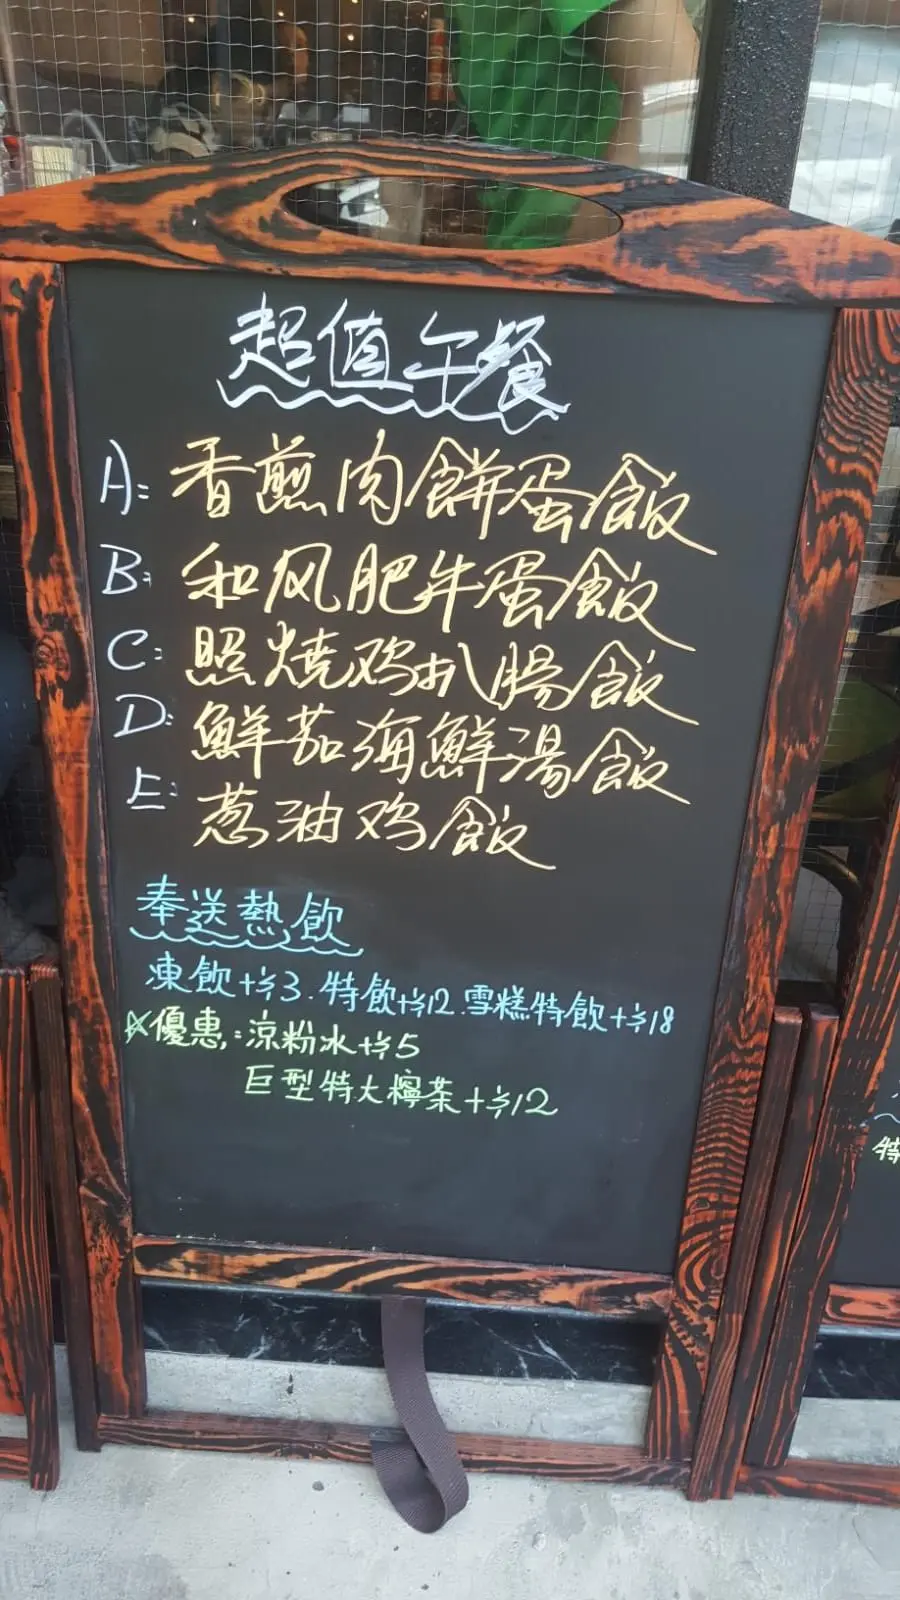 超值午餐
A: 香煎肉餅蛋飯
B: 和风肥牛蛋飯
C: 照燒鸡扒腸飯
D: 鮮茄海鮮湯飯
E: 葱油鸡飯
奉送熱飲
凍飲+$3.特飲+$12.雪糕特飲+$18
☆優惠:涼粉冰+$5
巨型特大檸茶+$12
特